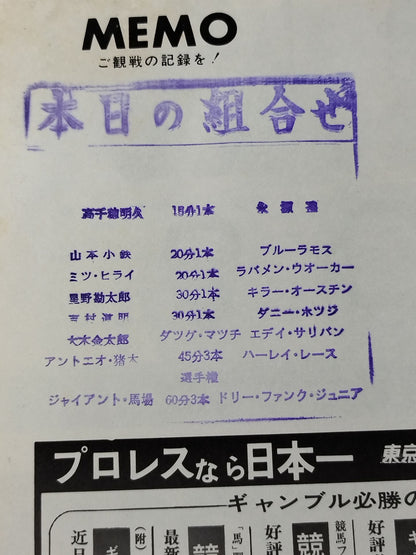 MEMO
ご観戦の記録を!
本日の組合せ
高千穂明久 15分1本 永源遙
山本小鉄 20分1本 ブルーラモス
ミツ・ヒライ 20分1本 ラバメン・ウオーカー
星野勘太郎 30分1本 キラー・オースチン
吉村道明 30分1本 ダニー・ホッジ
大木金太郎 タッグ・マッチ エデイ・サリバン
アントニオ・猪木 45分3本 ハーレイ・レース
選手権
ジャイアント・馬場 60分3本 ドリー・ファンク・ジュニア
プロレスなら日本一 東京
ギャンブル必勝の
近日
(附)
最新
「馬」
競
競馬
好評
競
好評